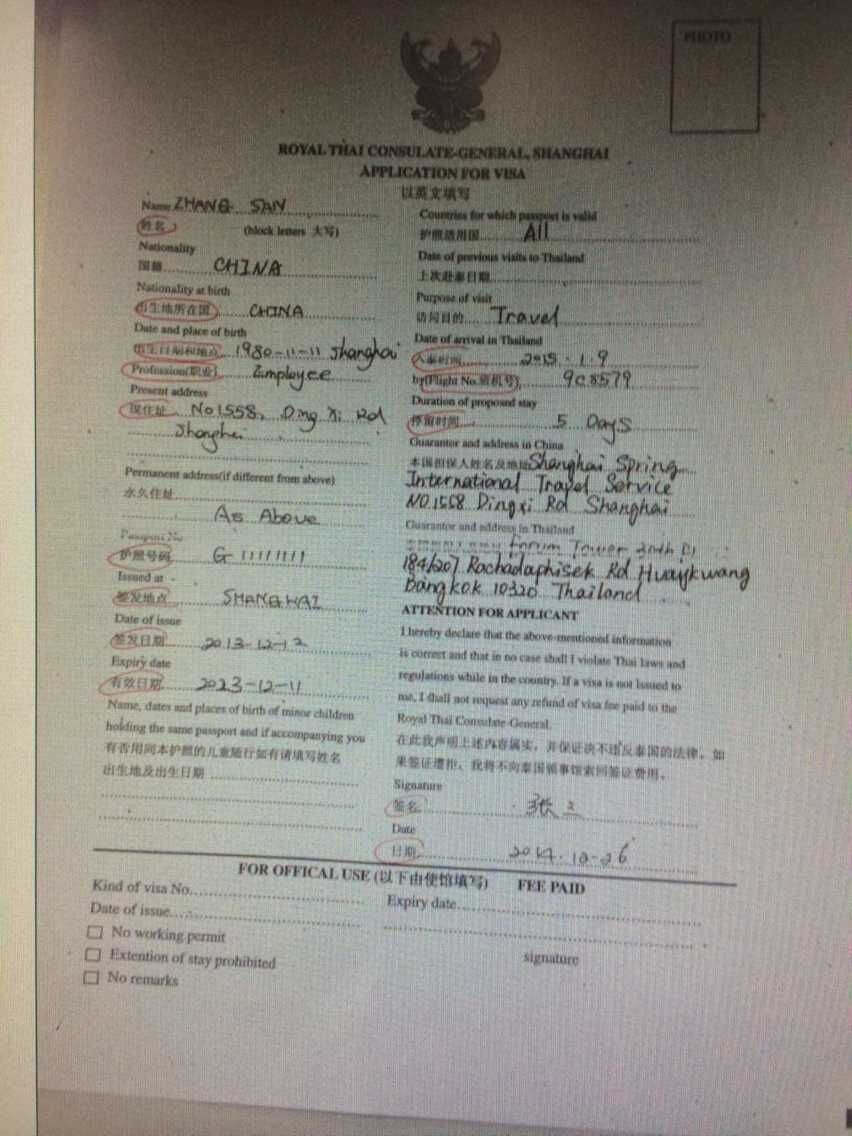 PHOTO
ROYAL THAI CONSULATE-GENERAL, SHANGHAI
APPLICATION FOR VISA
以英文填写
Name ZHANG SAN
姓名 (block letters 大写)
Nationality
国籍 CHINA
Nationality at birth
出生地所在国 CHINA
Date and place of birth
出生日期和地点 1980-11-11 Shanghai
Profession(职业) Employee
Present address
现住址 No 1558, Ding Xi Rd
Shanghai
Permanent address(if different from above)
永久住址
As Above
Passport No
护照号码 G 11111111
Issued at
签发地点 SHANGHAI
Date of issue
签发日期 2013-12-12
Expiry date
有效日期 2023-12-11
Name, dates and places of birth of minor children
holding the same passport and if accompanying you
有否用同本护照的儿童随行如有请填写姓名
出生地及出生日期
Countries for which passport is valid
护照适用国 All
Date of previous visits to Thailand
上次赴泰日期
Purpose of visit
访问目的 Travel
Date of arrival in Thailand
入泰时间 2015.1.9
by(Flight No.班机号) 9C8579
Duration of proposed stay
停留时间 5 Days
Guarantor and address in China
本国担保人姓名及地址 Shanghai Spring
International Travel Service
NO.1558 Dingxi Rd Shanghai
Guarantor and address in Thailand
Forum Tower 30th Fl
184/207 Rachadaphisek Rd Huaykwang
Bangkok 10320 Thailand
ATTENTION FOR APPLICANT
I hereby declare that the above-mentioned information
is correct and that in no case shall I violate Thai laws and
regulations while in the country. If a visa is not issued to
me, I shall not request any refund of visa fee paid to the
Royal Thai Consulate-General.
在此我声明上述内容属实，并保证决不违反泰国的法律，如
果签证遭拒，我将不向泰国领事馆索回签证费用。
Signature
签名 张三
Date
日期 2014.12-26
FOR OFFICAL USE (以下由使馆填写) FEE PAID
Kind of visa No.
Expiry date
Date of issue
No working permit
Extention of stay prohibited
signature
No remarks